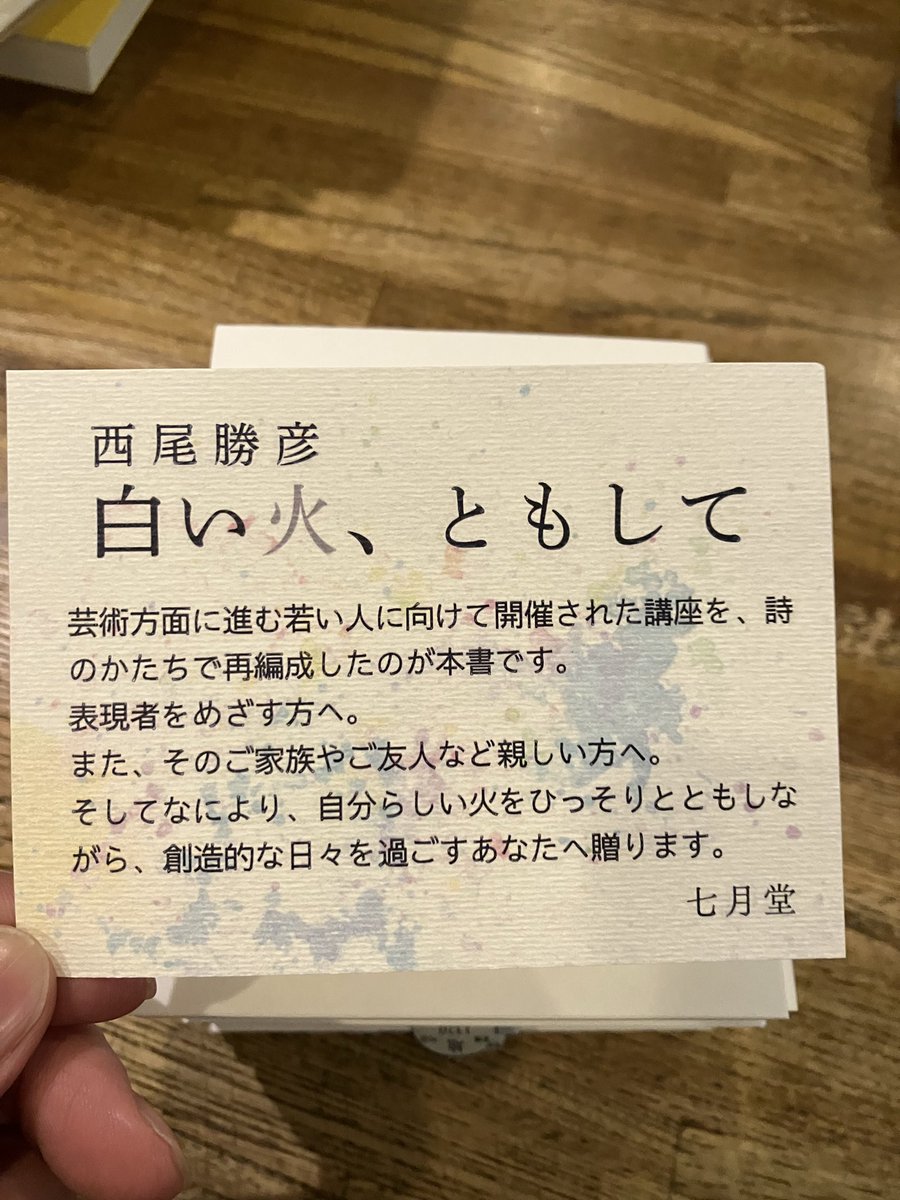 西尾勝彦
白い火、ともして
芸術方面に進む若い人に向けて開催された講座を、詩
のかたちで再編成したのが本書です。
表現者をめざす方へ。
また、そのご家族やご友人など親しい方へ。
そしてなにより、自分らしい火をひっそりとともしな
がら、創造的な日々を過ごすあなたへ贈ります。
七月堂